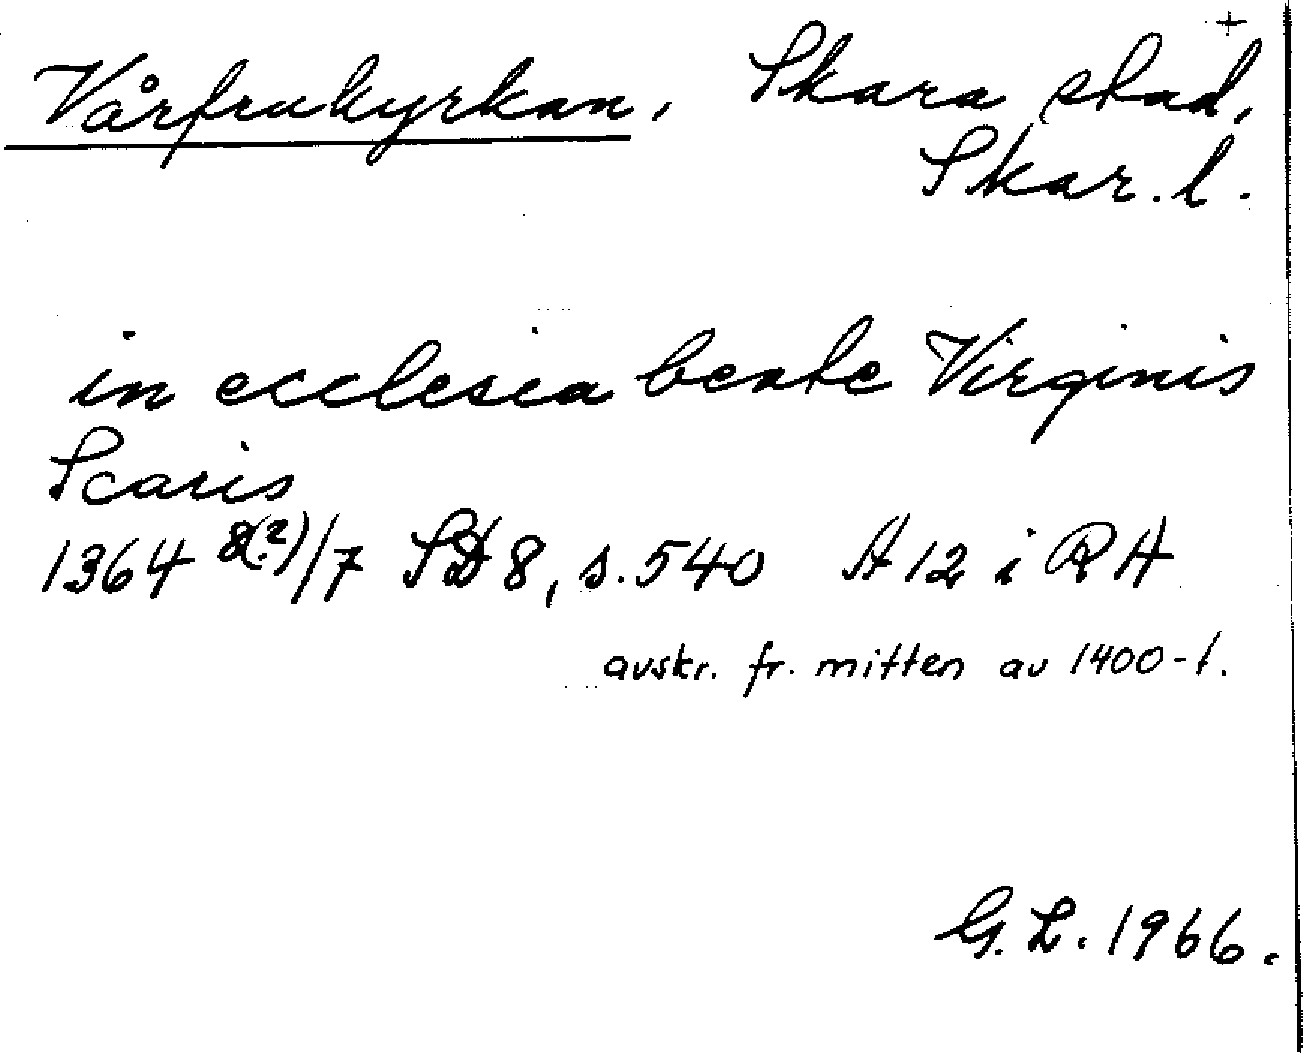 +
Vårfrukyrkan, Skara stad,
Skar. l.
in ecclesia beate Virginis
Scaris
1364 8(?)/7 SD 8, s. 540 A 12 i RA
avskr. fr. mitten av 1400-t.
G. L. 1966.